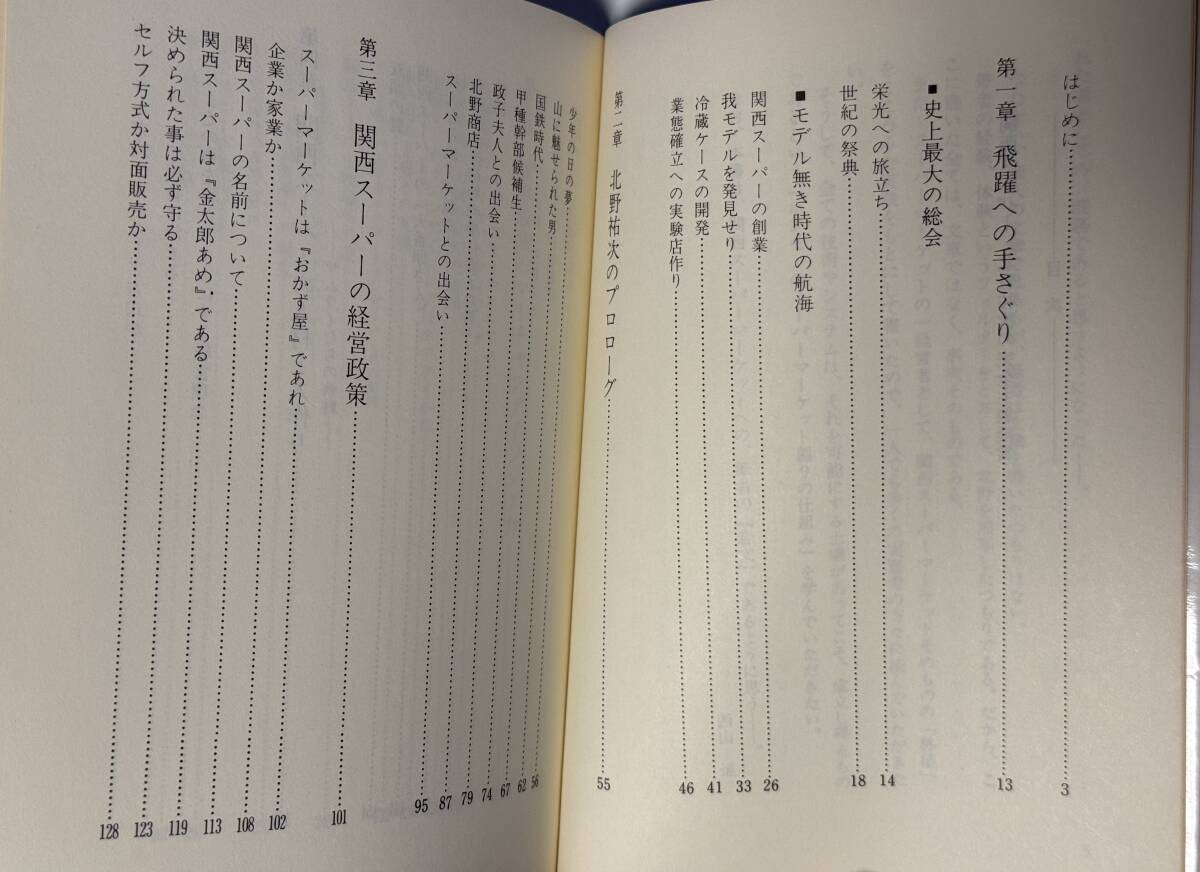 はじめに……3
第一章 飛躍への手さぐり……13
■史上最大の総会
栄光への旅立ち……14
世紀の祭典……18
■モデル無き時代の航海
関西スーパーの創業……26
我モデルを発見せり……33
冷蔵ケースの開発……41
業態確立への実験店作り……46
第二章 北野祐次のプロローグ……55
少年の日の夢……56
山に魅せられた男……62
国鉄時代……67
甲種幹部候補生……74
政子夫人との出会い……79
北野商店……87
スーパーマーケットとの出会い……95
第三章 関西スーパーの経営政策……101
スーパーマーケットは『おかず屋』であれ……102
企業か家業か……108
関西スーパーの名前について……113
関西スーパーは『金太郎あめ』である……119
決められた事は必ず守る……123
セルフ方式か対面販売か……128